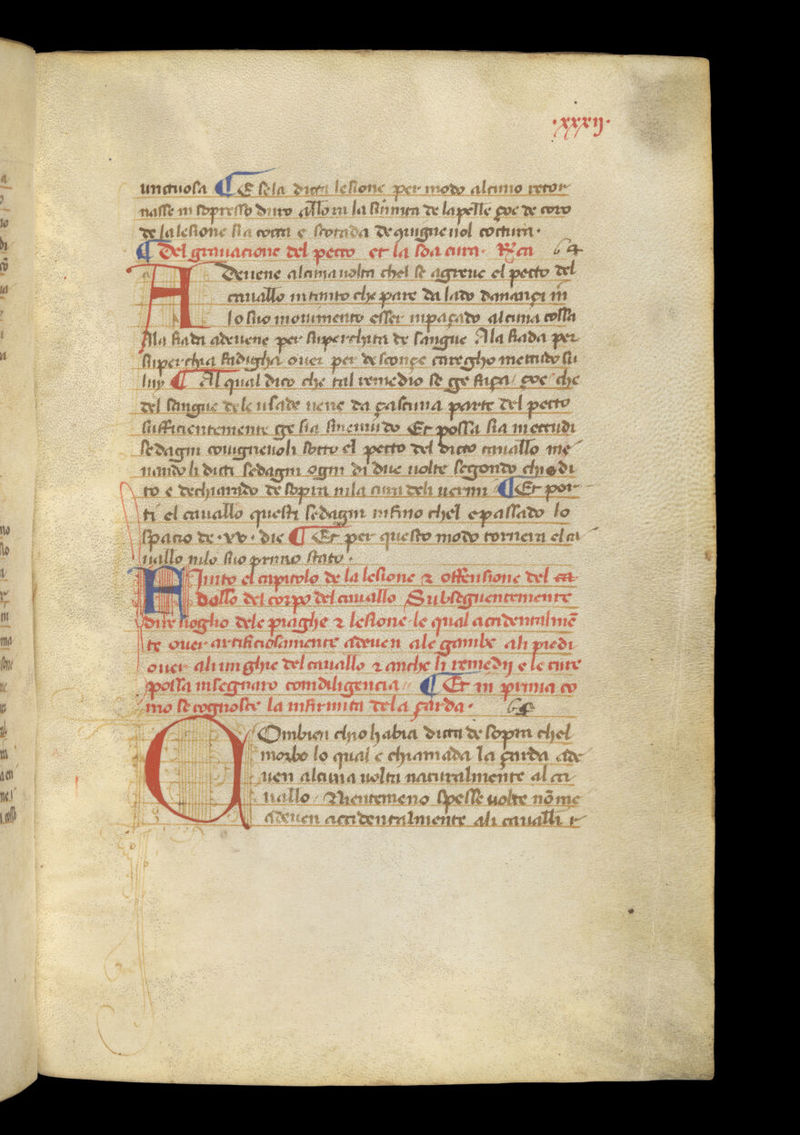 ·xxxij·
unctuosa ¶ E se la dicta lesione per modo alcuno retor
nasse in sopresso duro allora la sũmita de la pelle çoe de coro
de la lesione sia cocta e scotada de quignevol coctura·
¶ Del gravacione del pecto et la soa cura· R̃ca 64
ADevene alcuna volta chel se agreve el pecto del
cavallo in tanto che pare da lado danançi in
lo suo movimento esser inpaçado alcuna cossa
Ala fiada adevene per superchita de sangue Ala fiada per
superchia fadigha over per desconçe caregho metudo su
luy ¶ Al qual dico che tal remedio se ge faça çoe che
del sangue dele usade vene da çascuna parte del pecto
sufficientemente ge sia sinemudo Et possa sia metudi
sedagni covignevoli sotto el pecto del dicto cavallo me
nando li dicti sedagni ogni di due volte segondo che di
to e dechiarado de sopra nila cura deli vermi ¶ Et por
ti el cavallo questi sedagni infino chel e passado lo
spacio de ·xv· die ¶ Et per questo modo tornera el ca
vallo nilo suo primo stato·
FInito el capitolo de la lesione & offensione del ca
dosso del corpo del cavallo Subseguentemente
dire voglio dele piaghe & lesione le qual accidentalmē
te over artificiosamente adeven ale gambe ali piedi
over ali unghie del cavallo & anche li remedij e le cure
possa insegnaro con diligencia ¶ Et in prima co
mo se cognosce la infirmita dela çarda· 65
COmbien chio habia dicta de sopra chel
morbo lo qual e chiamada la çarda ade
ven alcuna volta naturalmente al ca
vallo Nientemeno spesse volte nō me
adeven accidentalmente ali cavalli e